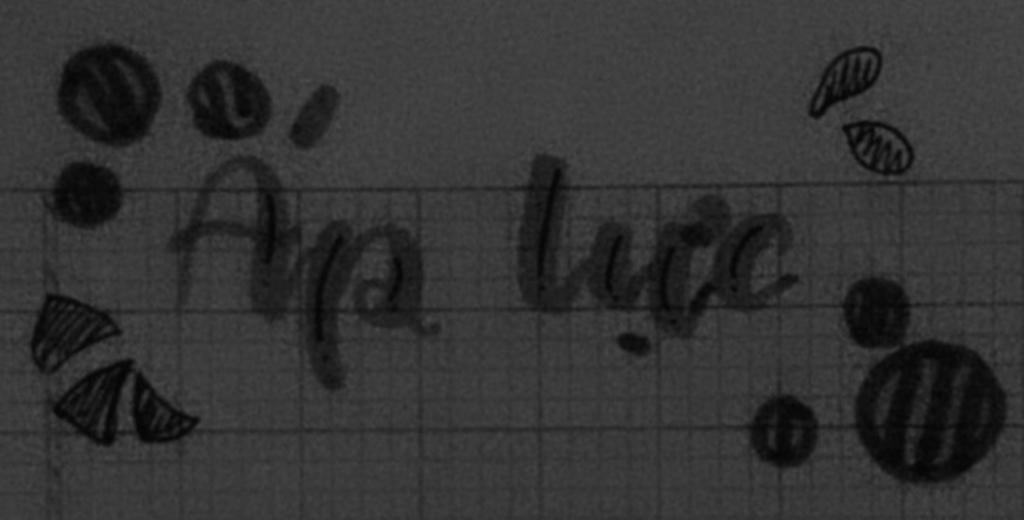 Áp lực